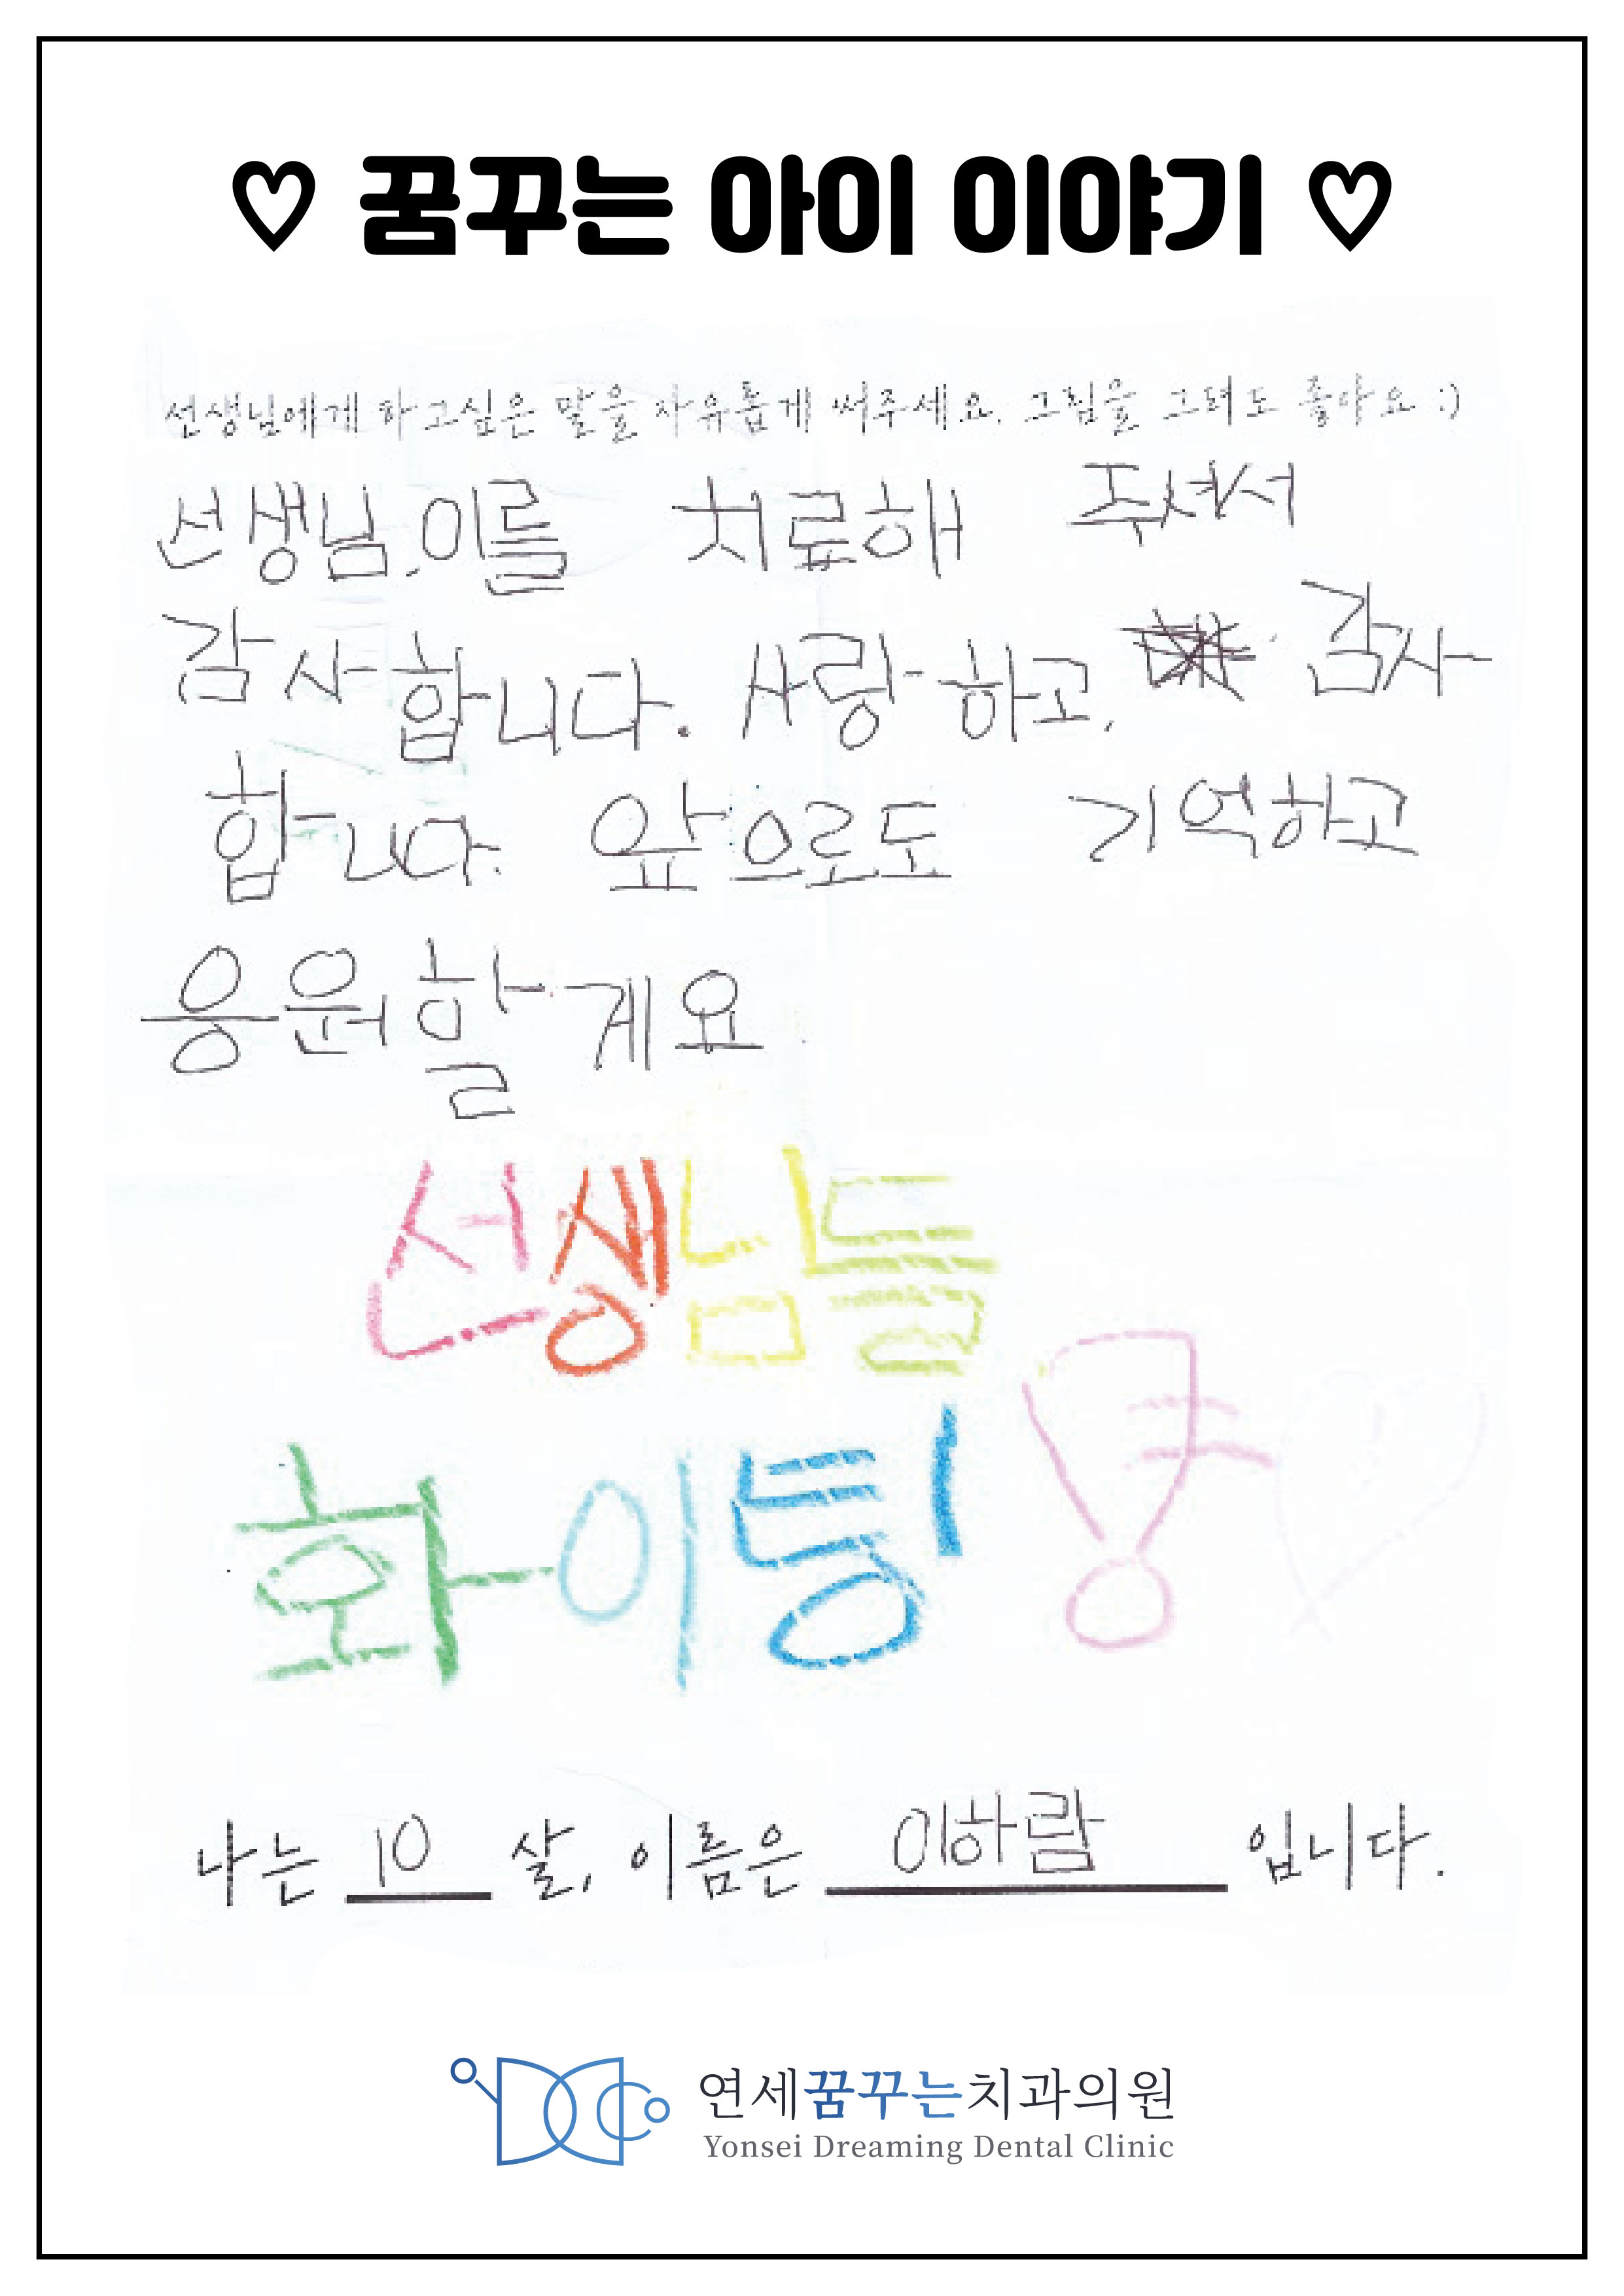 ♡ 꿈꾸는 아이 이야기 ♡
선생님에게 하고싶은 말을 자유롭게 써주세요. 그림을 그려도 좋아요 :)
선생님, 이를 치료해 주셔서
감사합니다. 사랑하고, 감사
합니다. 앞으로도 기억하고
응원할게요
선생님들
화이팅!
나는 10 살, 이름은 이하람 입니다.
연세꿈꾸는치과의원
Yonsei Dreaming Dental Clinic